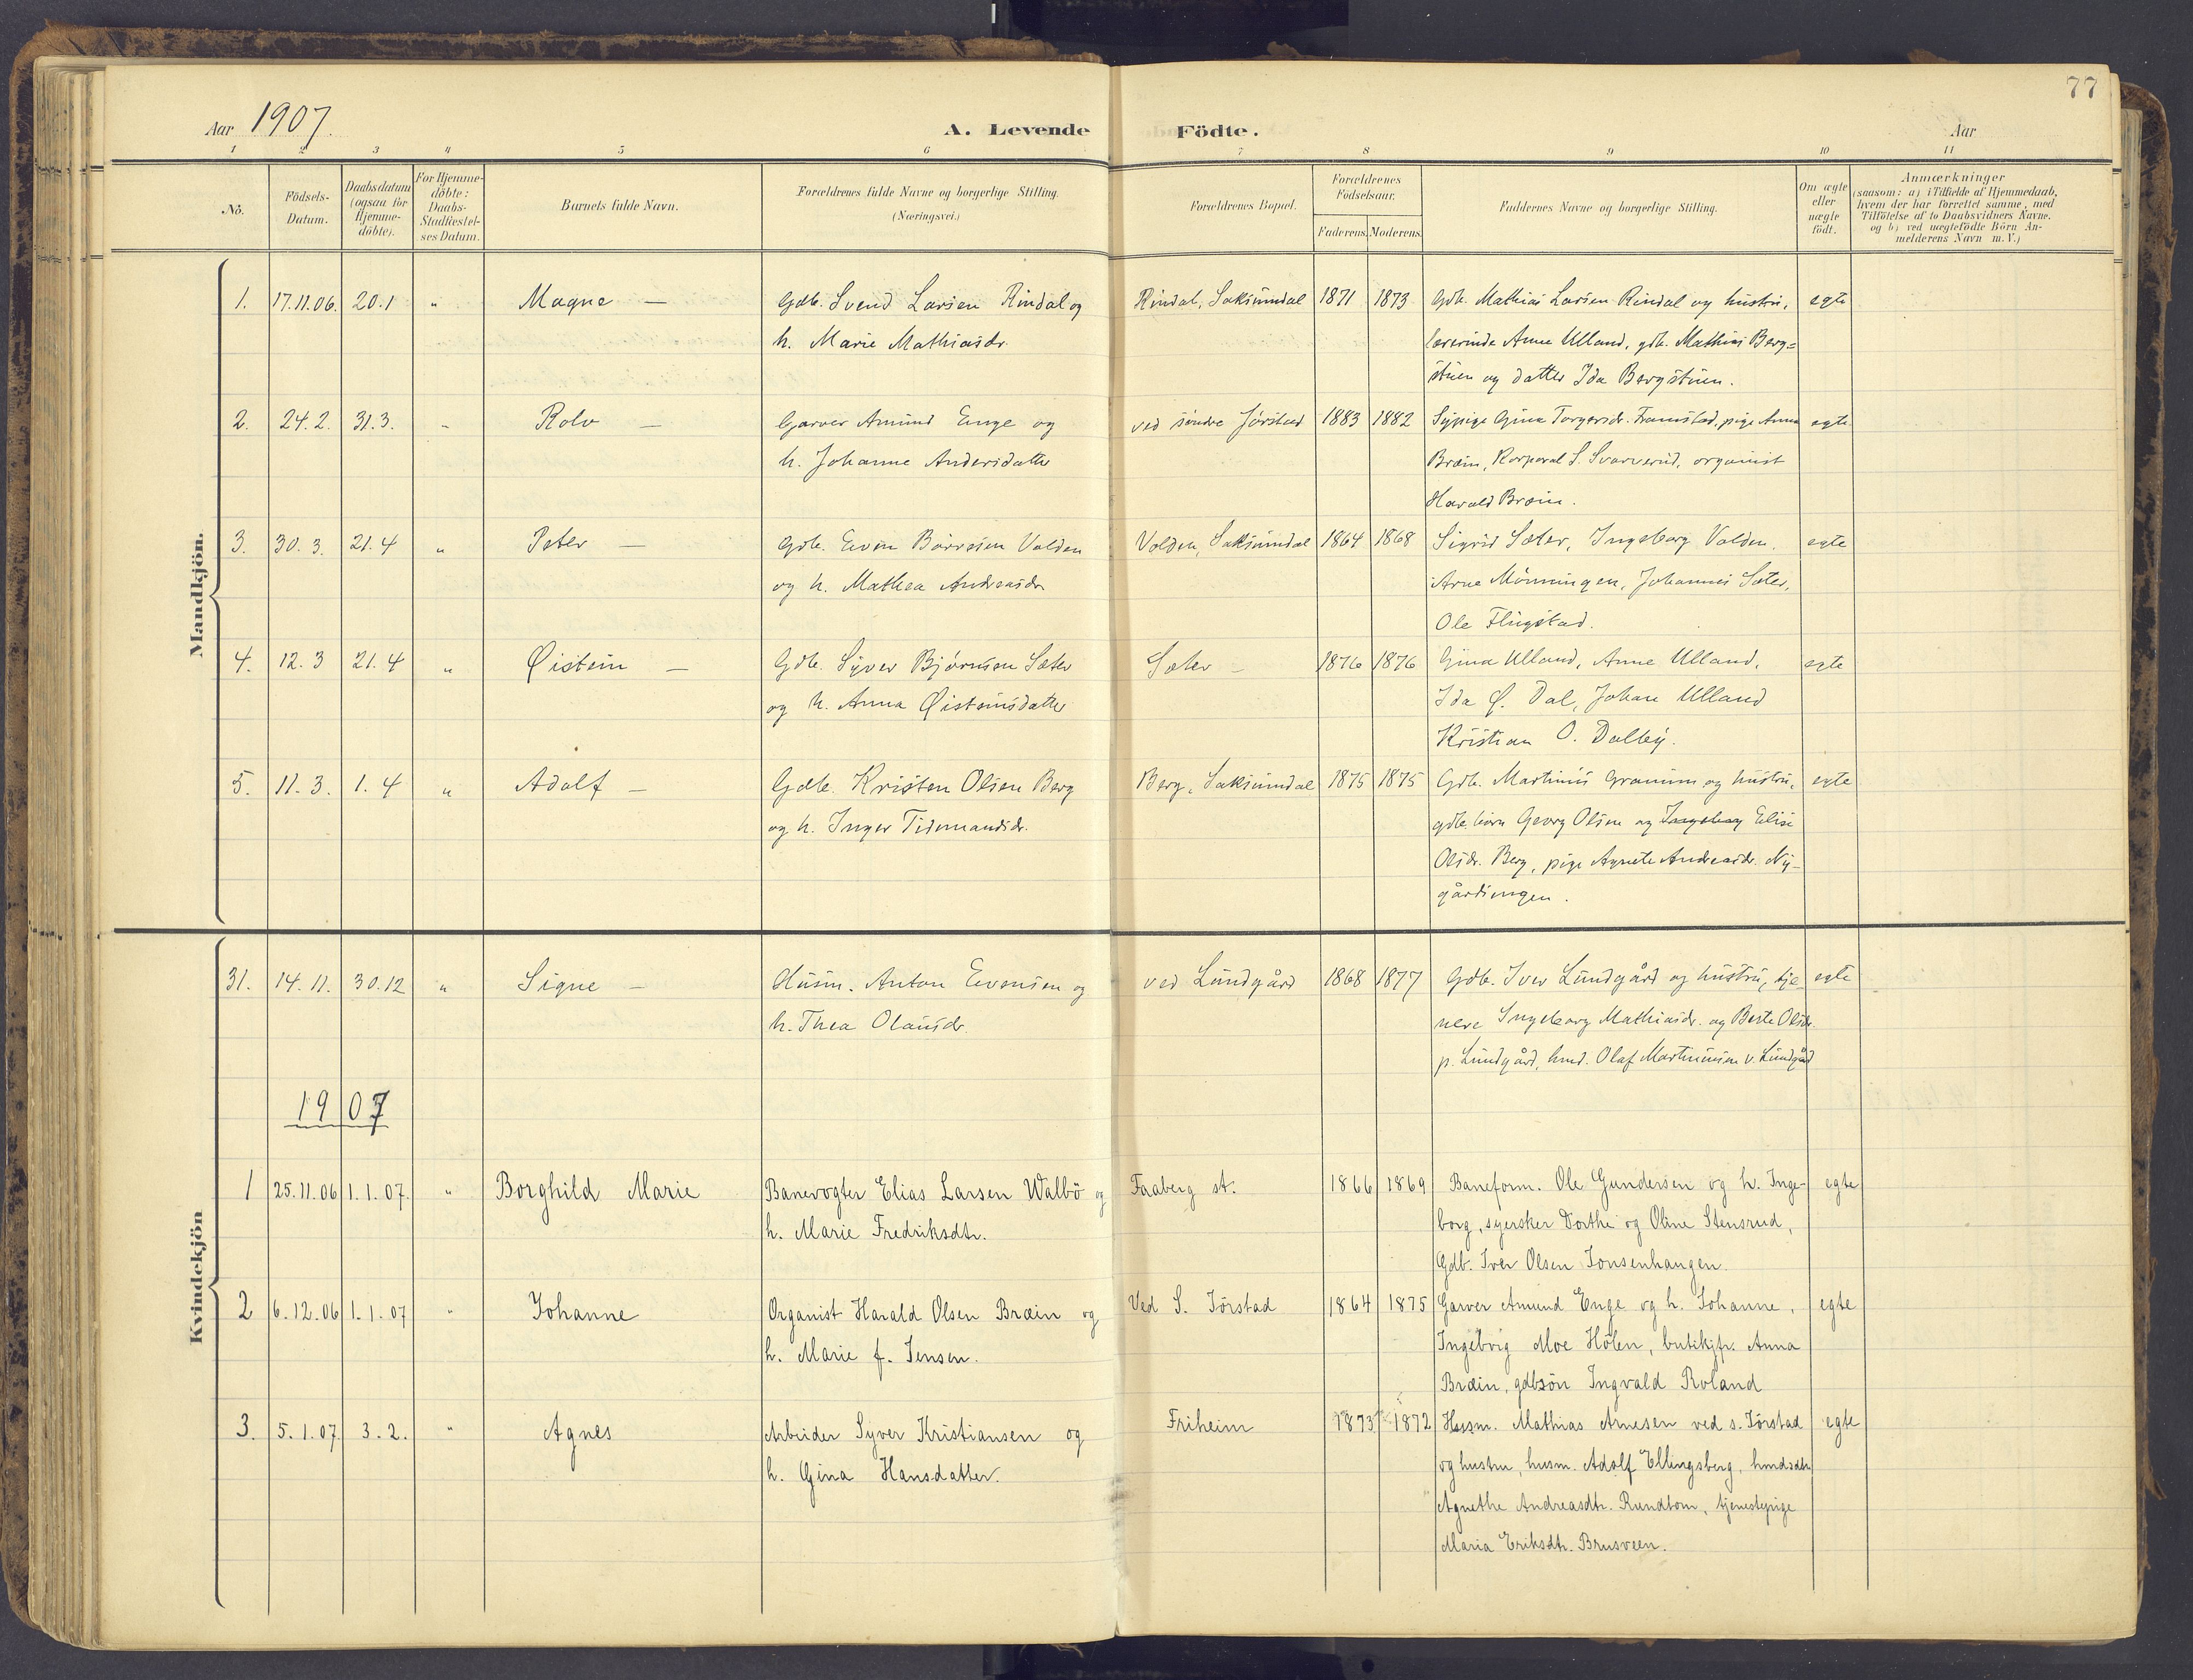 77
Aar 1907. A. Levende Födte. Aar
1 2 3 4 5 6 7 8 9 10 11
No.
Födsels-
Datum.
Daabsdatum
(ogsaa for
Hjemme-
döbte).
For Hjemme-
döbte:
Daabs-
Stadfæstel-
ses Datum.
Barnets fulde Navn.
Forældrenes fulde Navne og borgerlige Stilling.
(Næringsvei.)
Forældrenes Bopæl.
Forældrenes
Födselsaar.
Faderens. Moderens.
Faddernes Navne og borgerlige Stilling.
Om ægte
eller
uægte
födt.
Anmærkninger
(saasom: a) i Tilfælde af Hjemmedaab,
hvem der har forrettet samme, med
Tilföielse af to Daabsvidners Navne.
og b) ved uægtefödte Börn An-
melderens Navn m. V.)
Mandkjön.
1. 17.11.06. 20.1 " Magne — Gdb. Svend Larsen Rindal og Rindal, Saksumdal 1871 1873 Gdb. Mathias Larsen Rindal og hustru, egte
h. Marie Mathiasdr. lærerinde Anne Ulland, gdb. Mathias Berg=
stuen og datter Ida Bergstuen.
2. 24.2. 31.3. - Rolv — Garver Amund Enge og ved søndre Jørstad 1883 1882 Sypige Gina Torgersdr. Framstad, pige Anna egte
h. Johanne Andersdatter Bræin, Korporal S. Svarverud, organist
Harald Bræin.
3. 30.3. 21.4 " Peter — Gdb. Even Børresen Volden Volden, Saksumdal 1864 1868 Sigrid Sæter, Ingeborg Volden, egte
og h. Mathea Andreasdr. Arne Mønningen, Johannes Sæter,
Ole Flugstad.
4. 12.3 21.4 " Øistein — Gdb. Syver Bjørnsen Sæter Sæter — 1876 1876 Gina Ulland, Anne Ulland, egte
og h. Anna Øisteinsdatter Ida Ø. Dal, Johan Ulland
Kristian O. Dalby.
5. 11.3. 1.4 " Adolf — Gdb. Kristen Olsen Berg Berg, Saksumdal 1875 1875 Gdb. Martinus Granum og hustru, egte
og h. Inger Tidemandsdr. gdb. børn Georg Olsen og Ingeborg Elise
Olsdr. Berg, pige Agnete Andreasdr. Ny-
gårdsengen.
Kvindekjön
31. 14.11. 30.12 " Signe — Husm. Anton Evensen og ved Lundgård 1868 1877 Gdb. Iver Lundgård og hustru, tje- egte
h. Thea Olausdr. nere Ingeborg Mathiasdr. og Berte Olsdr.
p. Lundgård, hmd. Olaf Martinusen v. Lundgård
1907
1 25.11.06 1.1.07. " Borghild Marie Banevogter Elias Larsen Walbö og Faaberg st. 1866 1869 Baneform. Ole Gundersen og h. Inge- egte
h. Marie Fredriksdtr. borg, syersker Dorthe og Oline Stensrud,
Gdb. Iver Olsen Jonsenhaugen.
2 6.12.06 1.1.07 " Johanne Organist Harald Olsen Bræin og Ved S. Jörstad 1864 1875 Garver Amund Enge og h. Johanne, egte
h. Marie f. Jensen. Ingebrig Moe Hölen, butikjfr. Anna
Bræin, gdbsön Ingvald Roland
3. 5.1.07. 3.2. " Agnes Arbeider Syver Kristiansen og Friheim 1873 1872 Husm. Mathias Arnesen ved s. Jörstad egte
h. Gina Hansdatter. og hustru, husm. Adolf Ellingsberg, hmdsdtr.
Agnethe Andreasdtr. Rundtom, tjenestepige
Maria Eriksdtr. Brusveen.